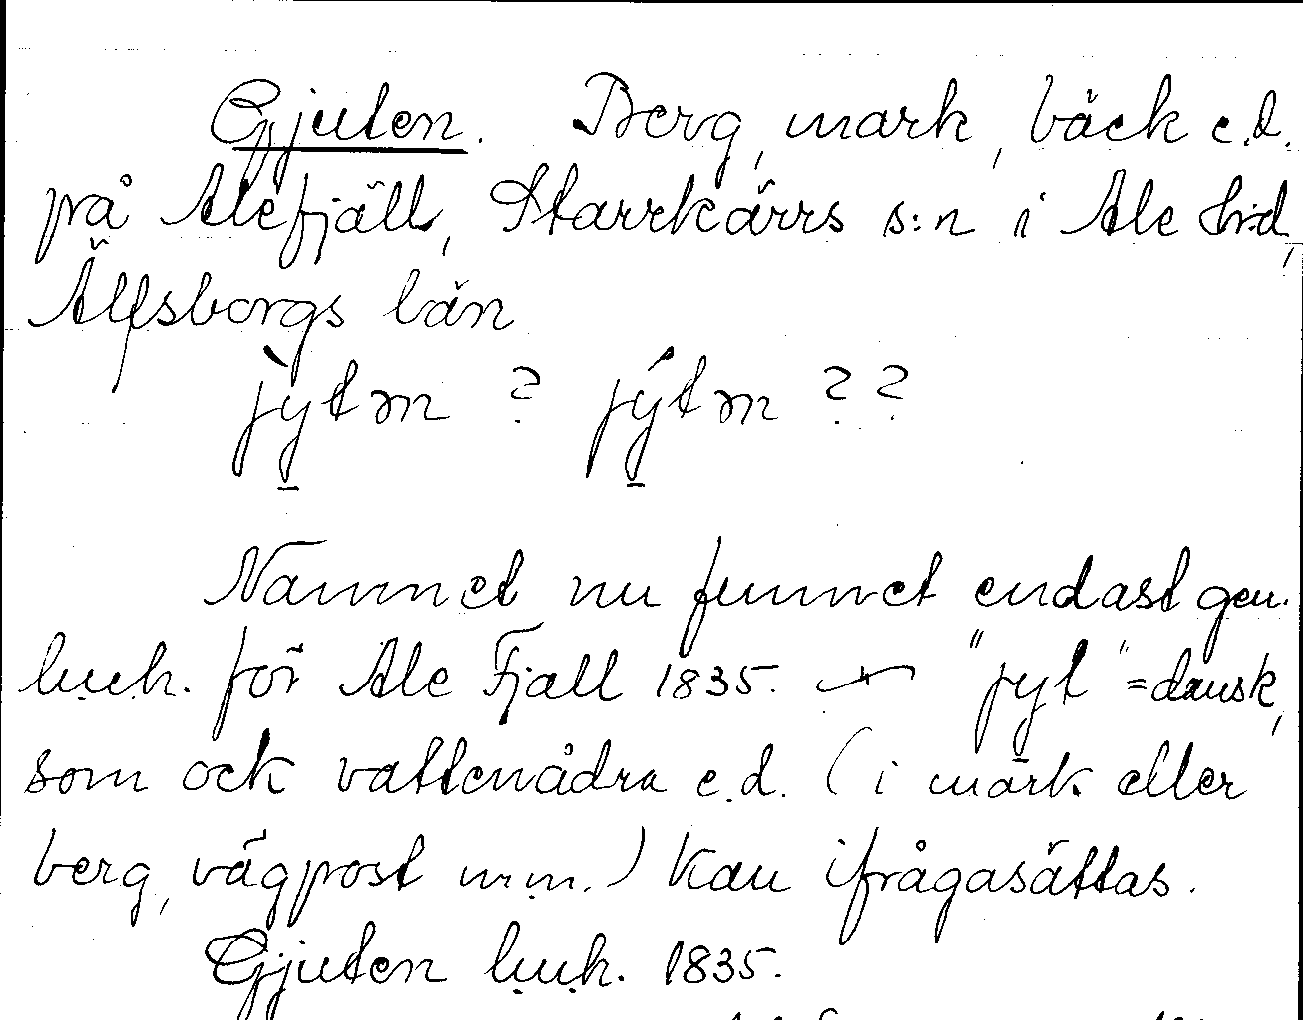 Gjuten. Berg, mark, bäck e.d.
på Alefjäll, Starrkärrs s:n i Ale hrd,
Älfsborgs län
jỳtən ? jýtən ??
Namnet nu funnet endast gen.
h.u.h. för Ale Fjäll 1835. — "jyt" = dansk,
som ock vattenådra e.d. (i mark eller
berg, vägpost m.m.) kan ifrågasättas.
Gjuten h.u.h. 1835.